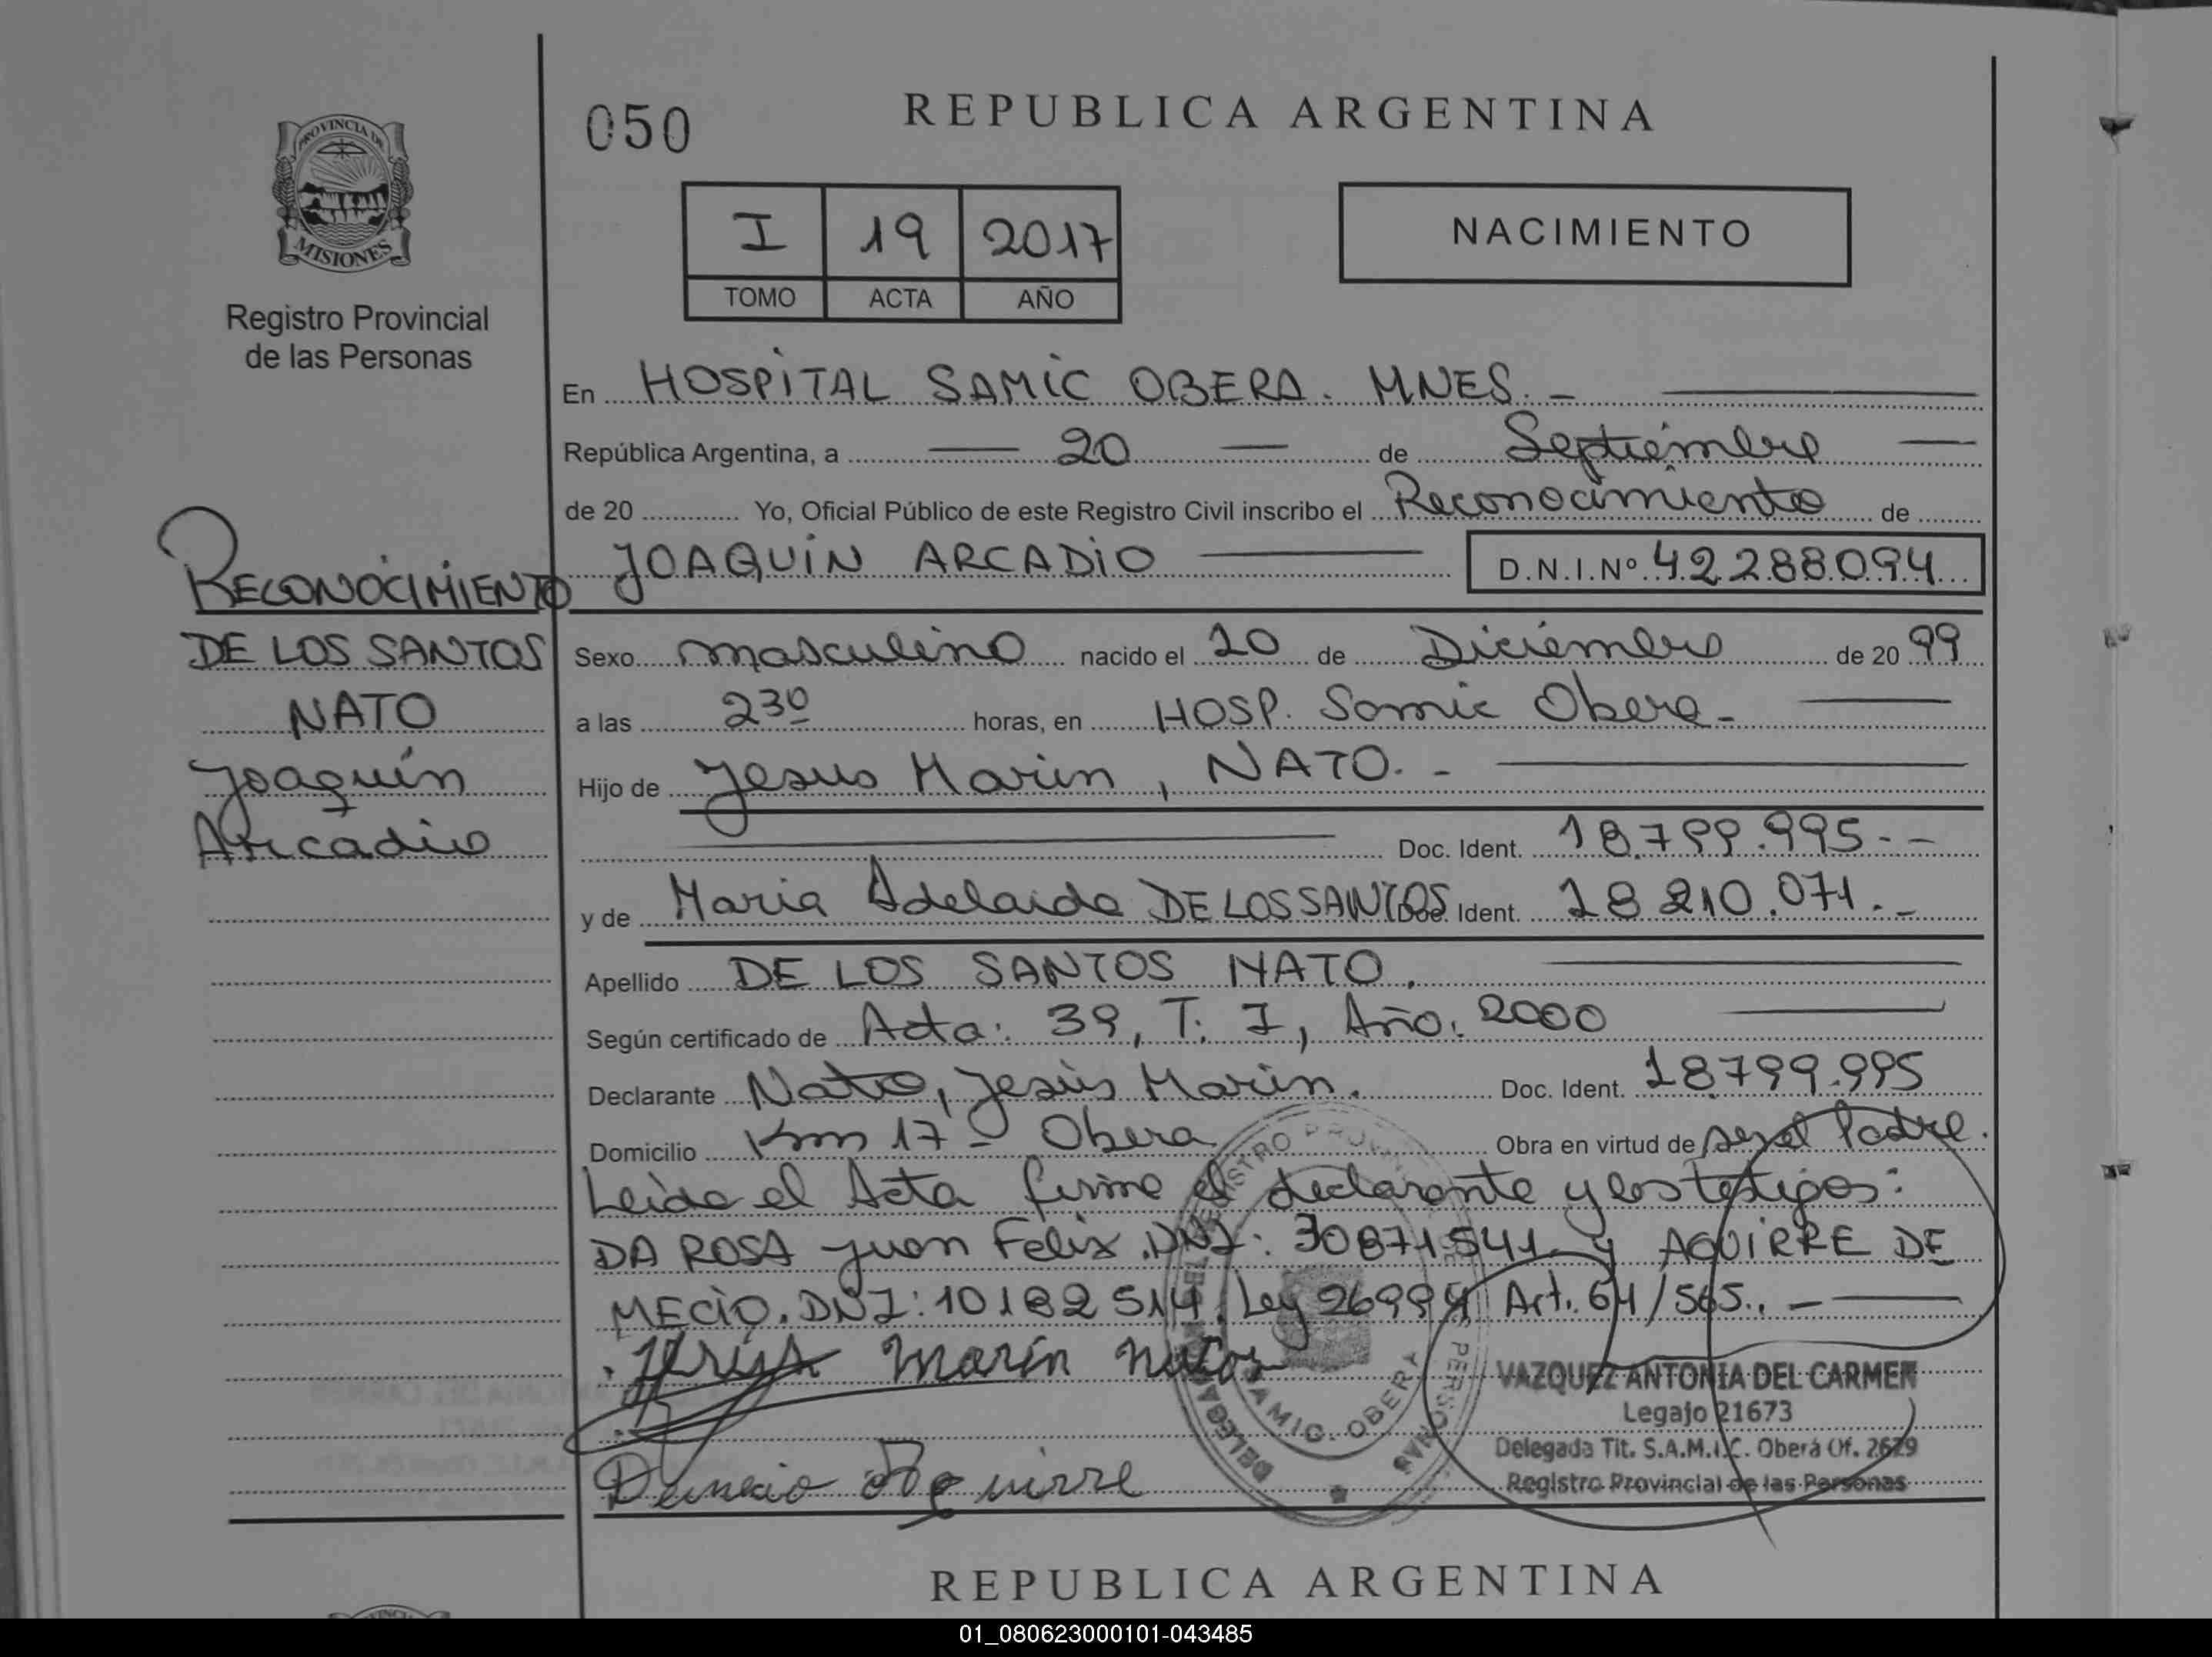 050
REPUBLICA ARGENTINA
PROVINCIA DE
MISIONES
Registro Provincial
de las Personas
I 19 2017
TOMO ACTA AÑO
NACIMIENTO
En HOSPITAL SAMIC OBERA. MNES. -
República Argentina, a 20 de Septiembre
de 20 Yo, Oficial Público de este Registro Civil inscribo el Reconocimiento de
JOAQUIN ARCADIO D.N.I.Nº 42288094
RECONOCIMIENTO
DE LOS SANTOS
NATO
Joaquín
Arcadio
Sexo masculino nacido el 20 de Diciembre de 20 99
a las 23º horas, en HOSP. Samic Obera -
Hijo de Jesus Marin, NATO. -
Doc. Ident. 18.799.995. -
y de Maria Adelaida DE LOS SANTOS Doc. Ident. 18 210.071. -
Apellido DE LOS SANTOS NATO.
Según certificado de Acta: 39, T: I, Año: 2000
Declarante Nato, Jesús Marin. Doc. Ident. 18799.995
Domicilio Km 17 - Obera Obra en virtud de ser el Padre.
Leida el Acta firma el declarante y los testigos:
DA ROSA Juan Felix. DNI: 30871541 y AGUIRRE DE
MECIO. DNI: 10182514. Ley 26994 Art. 64/565. -
Marín
Aguirre
DELEGA
S.A.M.I.C. OBERA
VAZQUEZ ANTONIA DEL CARMEN
Legajo 21673
Delegada Tit. S.A.M.I.C. Oberá Of. 2629
Registro Provincial de las Personas
REPUBLICA ARGENTINA
01_080623000101-043485